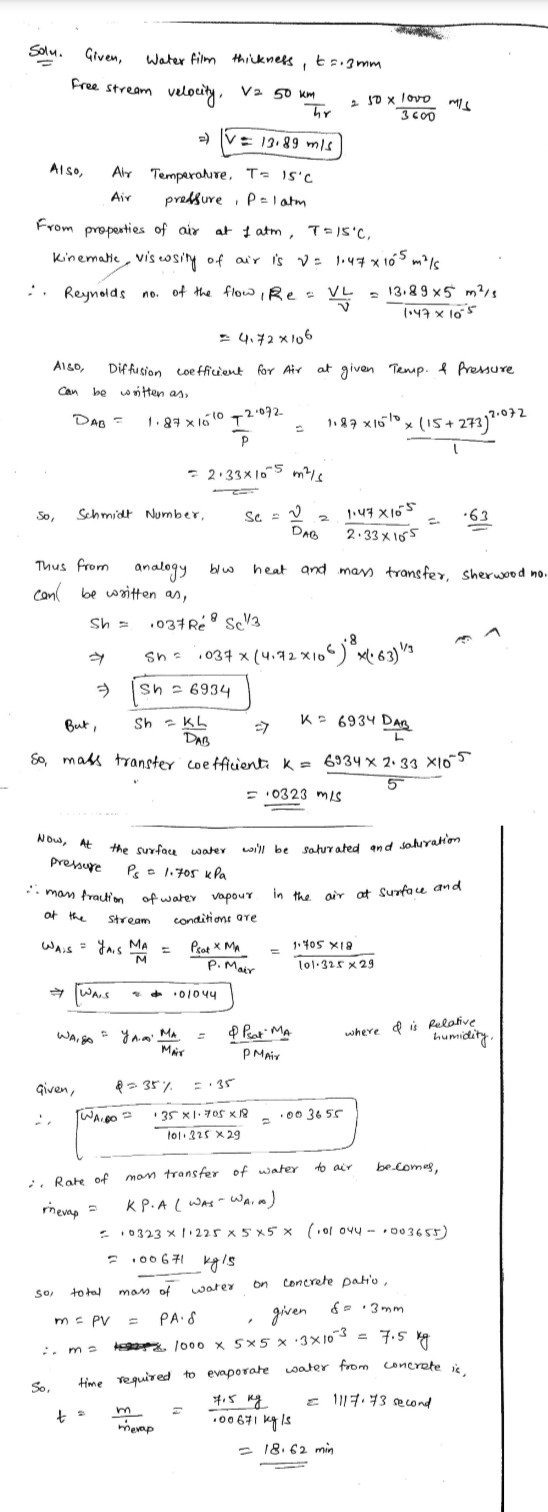 Soln. Given, Water film thickness, t = .3mm
Free stream velocity, V= 50 km/hr = 50 x 1000/3600 m/s
⇒ V = 13.89 m/s
Also, Air Temperature, T= 15°C
Air pressure, P = 1 atm
From properties of air at 1 atm, T = 15°C,
Kinematic viscosity of air is ν = 1.47 x 10^-5 m²/s
∴ Reynolds no. of the flow, Re = VL/ν = 13.89 x 5 m²/s / 1.47 x 10^-5
= 4.72 x 10^6
Also, Diffusion coefficient for Air at given Temp. & Pressure
can be written as,
D_AB = 1.87 x 10^-10 T^2.072/P = 1.87 x 10^-10 x (15 + 273)^2.072/1
= 2.33 x 10^-5 m²/s
So, Schmidt Number, Sc = ν/D_AB = 1.47 x 10^-5/2.33 x 10^-5 = .63
Thus from analogy b/w heat and mass transfer, Sherwood no.
can be written as,
Sh = .037 Re^.8 Sc^1/3
⇒ Sh = .037 x (4.72 x 10^6)^.8 x (.63)^1/3
⇒ Sh = 6934
But, Sh = KL/D_AB ⇒ K = 6934 D_AB/L
So, mass transfer coefficient K = 6934 x 2.33 x 10^-5/5
= .0323 m/s
Now, At the surface water will be saturated and saturation
pressure Ps = 1.705 kPa
∴ mass fraction of water vapour in the air at surface and
at the stream conditions are
W_A,s = y_A,s M_A/M = Psat x M_A/P. Mair = 1.705 x 18/101.325 x 29
⇒ W_A,s = .01044
W_A,∞ = y_A,∞ M_A/M_Air = φ Psat. M_A/P M_Air where φ is Relative humidity.
Given, φ = 35 % = .35
∴ W_A,∞ = .35 x 1.705 x 18/101.325 x 29 = .003655
∴ Rate of mass transfer of water to air becomes,
ṁevap = K ρ.A ( W_A,s - W_A,∞)
= .0323 x 1.225 x 5 x 5 x (.01044 - .003655)
= .00671 kg/s
So, total mass of water on concrete patio,
m = ρV = ρA.δ , given δ = .3mm
∴ m = 1000 x 5x5 x .3x10^-3 = 7.5 kg
So, time required to evaporate water from concrete is,
t = m/ṁevap = 7.5 kg/.00671 kg/s = 1117.73 second
= 18.62 min